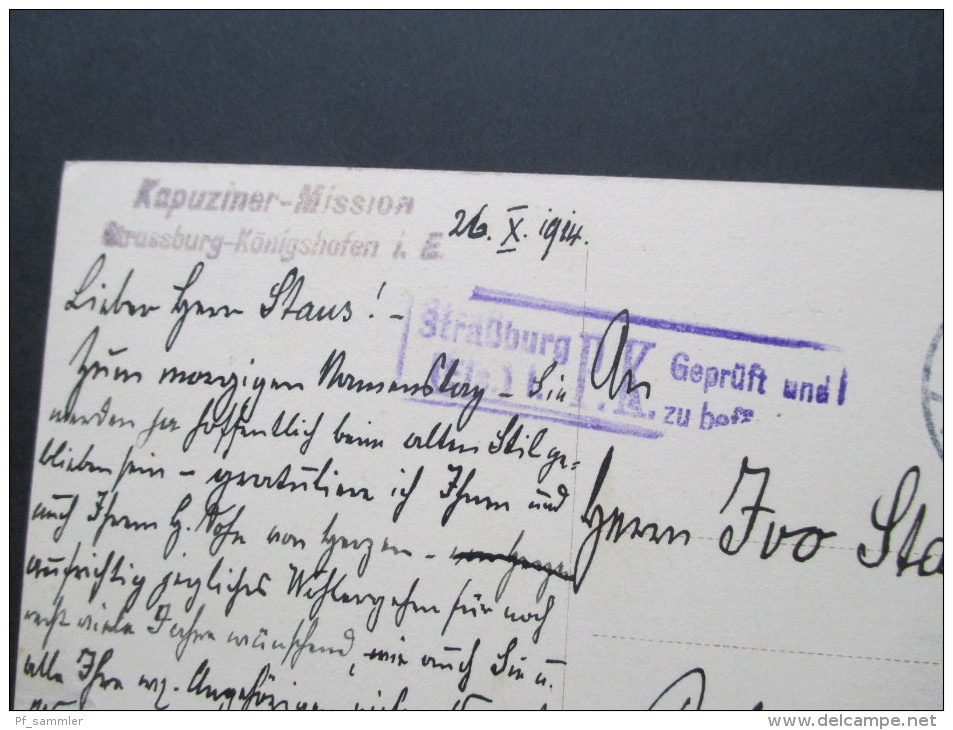 Kapuziner-Mission
Strassburg-Königshofen i. E.
26. X. 1914.
Lieber Herr Staus! -
Zum morgigen Namenstag - Sie
werden ja hoffentlich beim alten Stil ge=
blieben sein - gratuliere ich Ihnen und
auch Ihrem H. Sohn von Herzen - von Herzen
aufrichtig jegliches Wohlergehen für noch
recht viele Jahre wünschend, wie auch Sie u.
alle Ihre Angehörigen
Straßburg
(Els.)
P.K.
Geprüft und
zu bef
An
Herrn Ivo Sta
Pf_sammler
www.delcampe.net